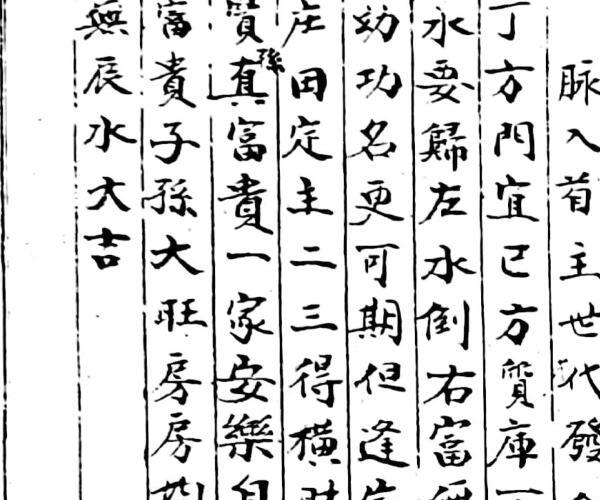 脉入首主世代發
丁方門宜巳方質庫
水要歸左水倒右富
幼功名更可期但逢
庄田定主二三得橫財
賢孫真富貴一家安樂自
富貴子孫大旺房房
無辰水大吉